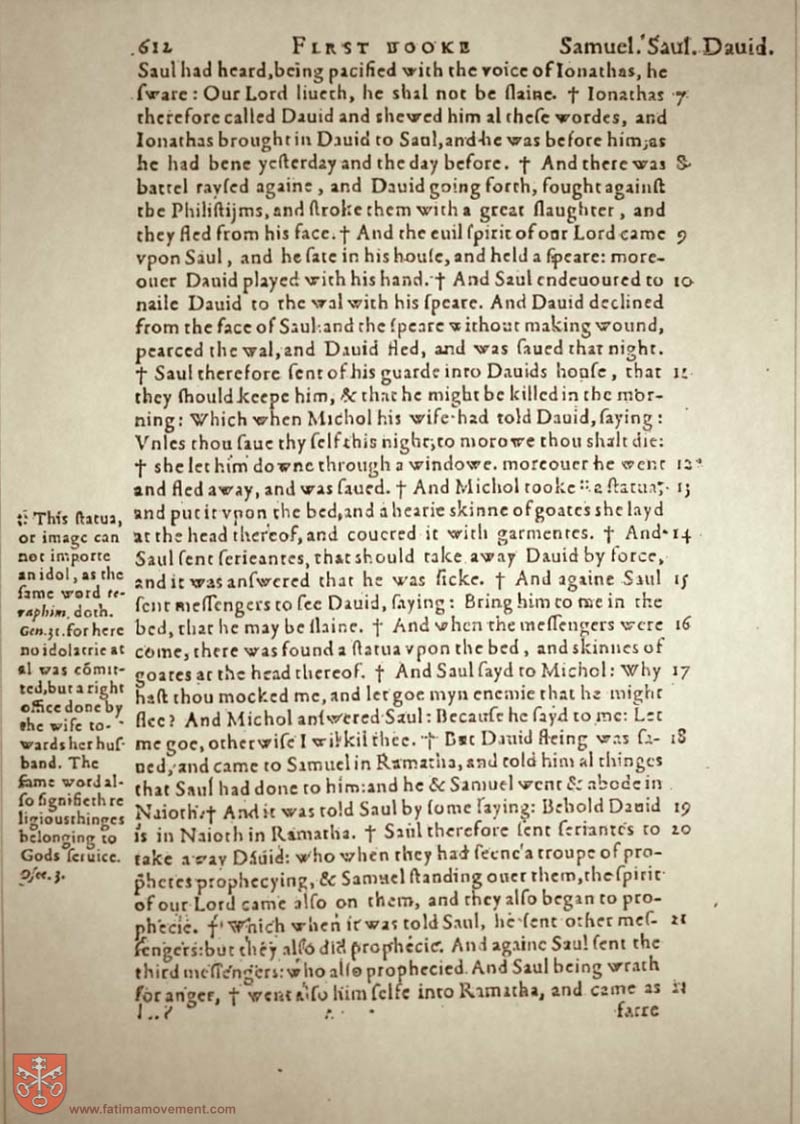 612 FIRST BOOKE Samuel. Saul. Dauid.
Saul had heard, being pacified with the voice of Ionathas, he
ſware: Our Lord liueth, he shal not be ſlaine. † Ionathas 7
therefore called Dauid and shewed him al theſe wordes, and
Ionathas brought in Dauid to Saul, and he was before him, as
he had bene yeſterday and the day before. † And there was 8
battel rayſed againe, and Dauid going forth, fought againſt
the Philiſtijms, and ſtroke them with a great ſlaughter, and
they fled from his face. † And the euil ſpirit of our Lord came 9
vpon Saul, and he ſate in his houſe, and held a ſpeare: more-
ouer Dauid played with his hand. † And Saul endeuoured to 10
naile Dauid to the wal with his ſpeare. And Dauid declined
from the face of Saul: and the ſpeare without making wound,
pearced the wal, and Dauid fled, and was ſaued that night.
† Saul therefore ſent of his guarde into Dauids houſe, that 11
they ſhould keepe him, & that he might be killed in the mor-
ning: Which when Michol his wife had told Dauid, ſaying:
Vnles thou ſaue thy ſelf this night, to morowe thou shalt die:
† she let him downe through a windowe. moreouer he went 12
and fled away, and was ſaued. † And Michol tooke :: a ſtatua, 13
and put it vpon the bed, and a hearie skinne of goates she layd
at the head thereof, and couered it with garmentes. † And 14
Saul ſent ſerieantes, that should take away Dauid by force,
and it was anſwered that he was ſicke. † And againe Saul 15
ſent meſſengers to ſee Dauid, ſaying: Bring him to me in the
bed, that he may be ſlaine. † And when the meſſengers were 16
come, there was found a ſtatua vpon the bed, and skinnes of
goates at the head thereof. † And Saul ſayd to Michol: Why 17
haſt thou mocked me, and let goe myn enemie that he might
flee? And Michol anſwered Saul: Becauſe he ſayd to me: Let
me goe, otherwiſe I wil kil thee. † But Dauid fleing was ſa- 18
ued, and came to Samuel in Ramatha, and told him al thinges
that Saul had done to him: and he & Samuel went & abode in
Naioth. † And it was told Saul by ſome ſaying: Behold Dauid 19
is in Naioth in Ramatha. † Saul therefore ſent ſeriantes to 20
take away Dauid: who when they had ſeene a troupe of pro-
phetes prophecying, & Samuel ſtanding ouer them, the ſpirit
of our Lord came alſo on them, and they alſo began to pro-
phecie. † Which when it was told Saul, he ſent other meſ- 21
ſengers: but they alſo did prophecie. And againe Saul ſent the
third meſſengers: who alſo prophecied. And Saul being wrath
for anger, † went alſo him ſelfe into Ramatha, and came as 22
farre
:: This ſtatua,
or image can
not importe
an idol, as the
ſame word te-
raphim, doth.
Gen. 31. for here
no idolatrie at
al was cõmit-
ted, but a right
office done by
the wife to-
wards her huſ-
band. The
ſame word al-
ſo ſignifieth re
ligious thinges
belonging to
Gods ſeruice.
Oſee. 3.
www.fatimamovement.com